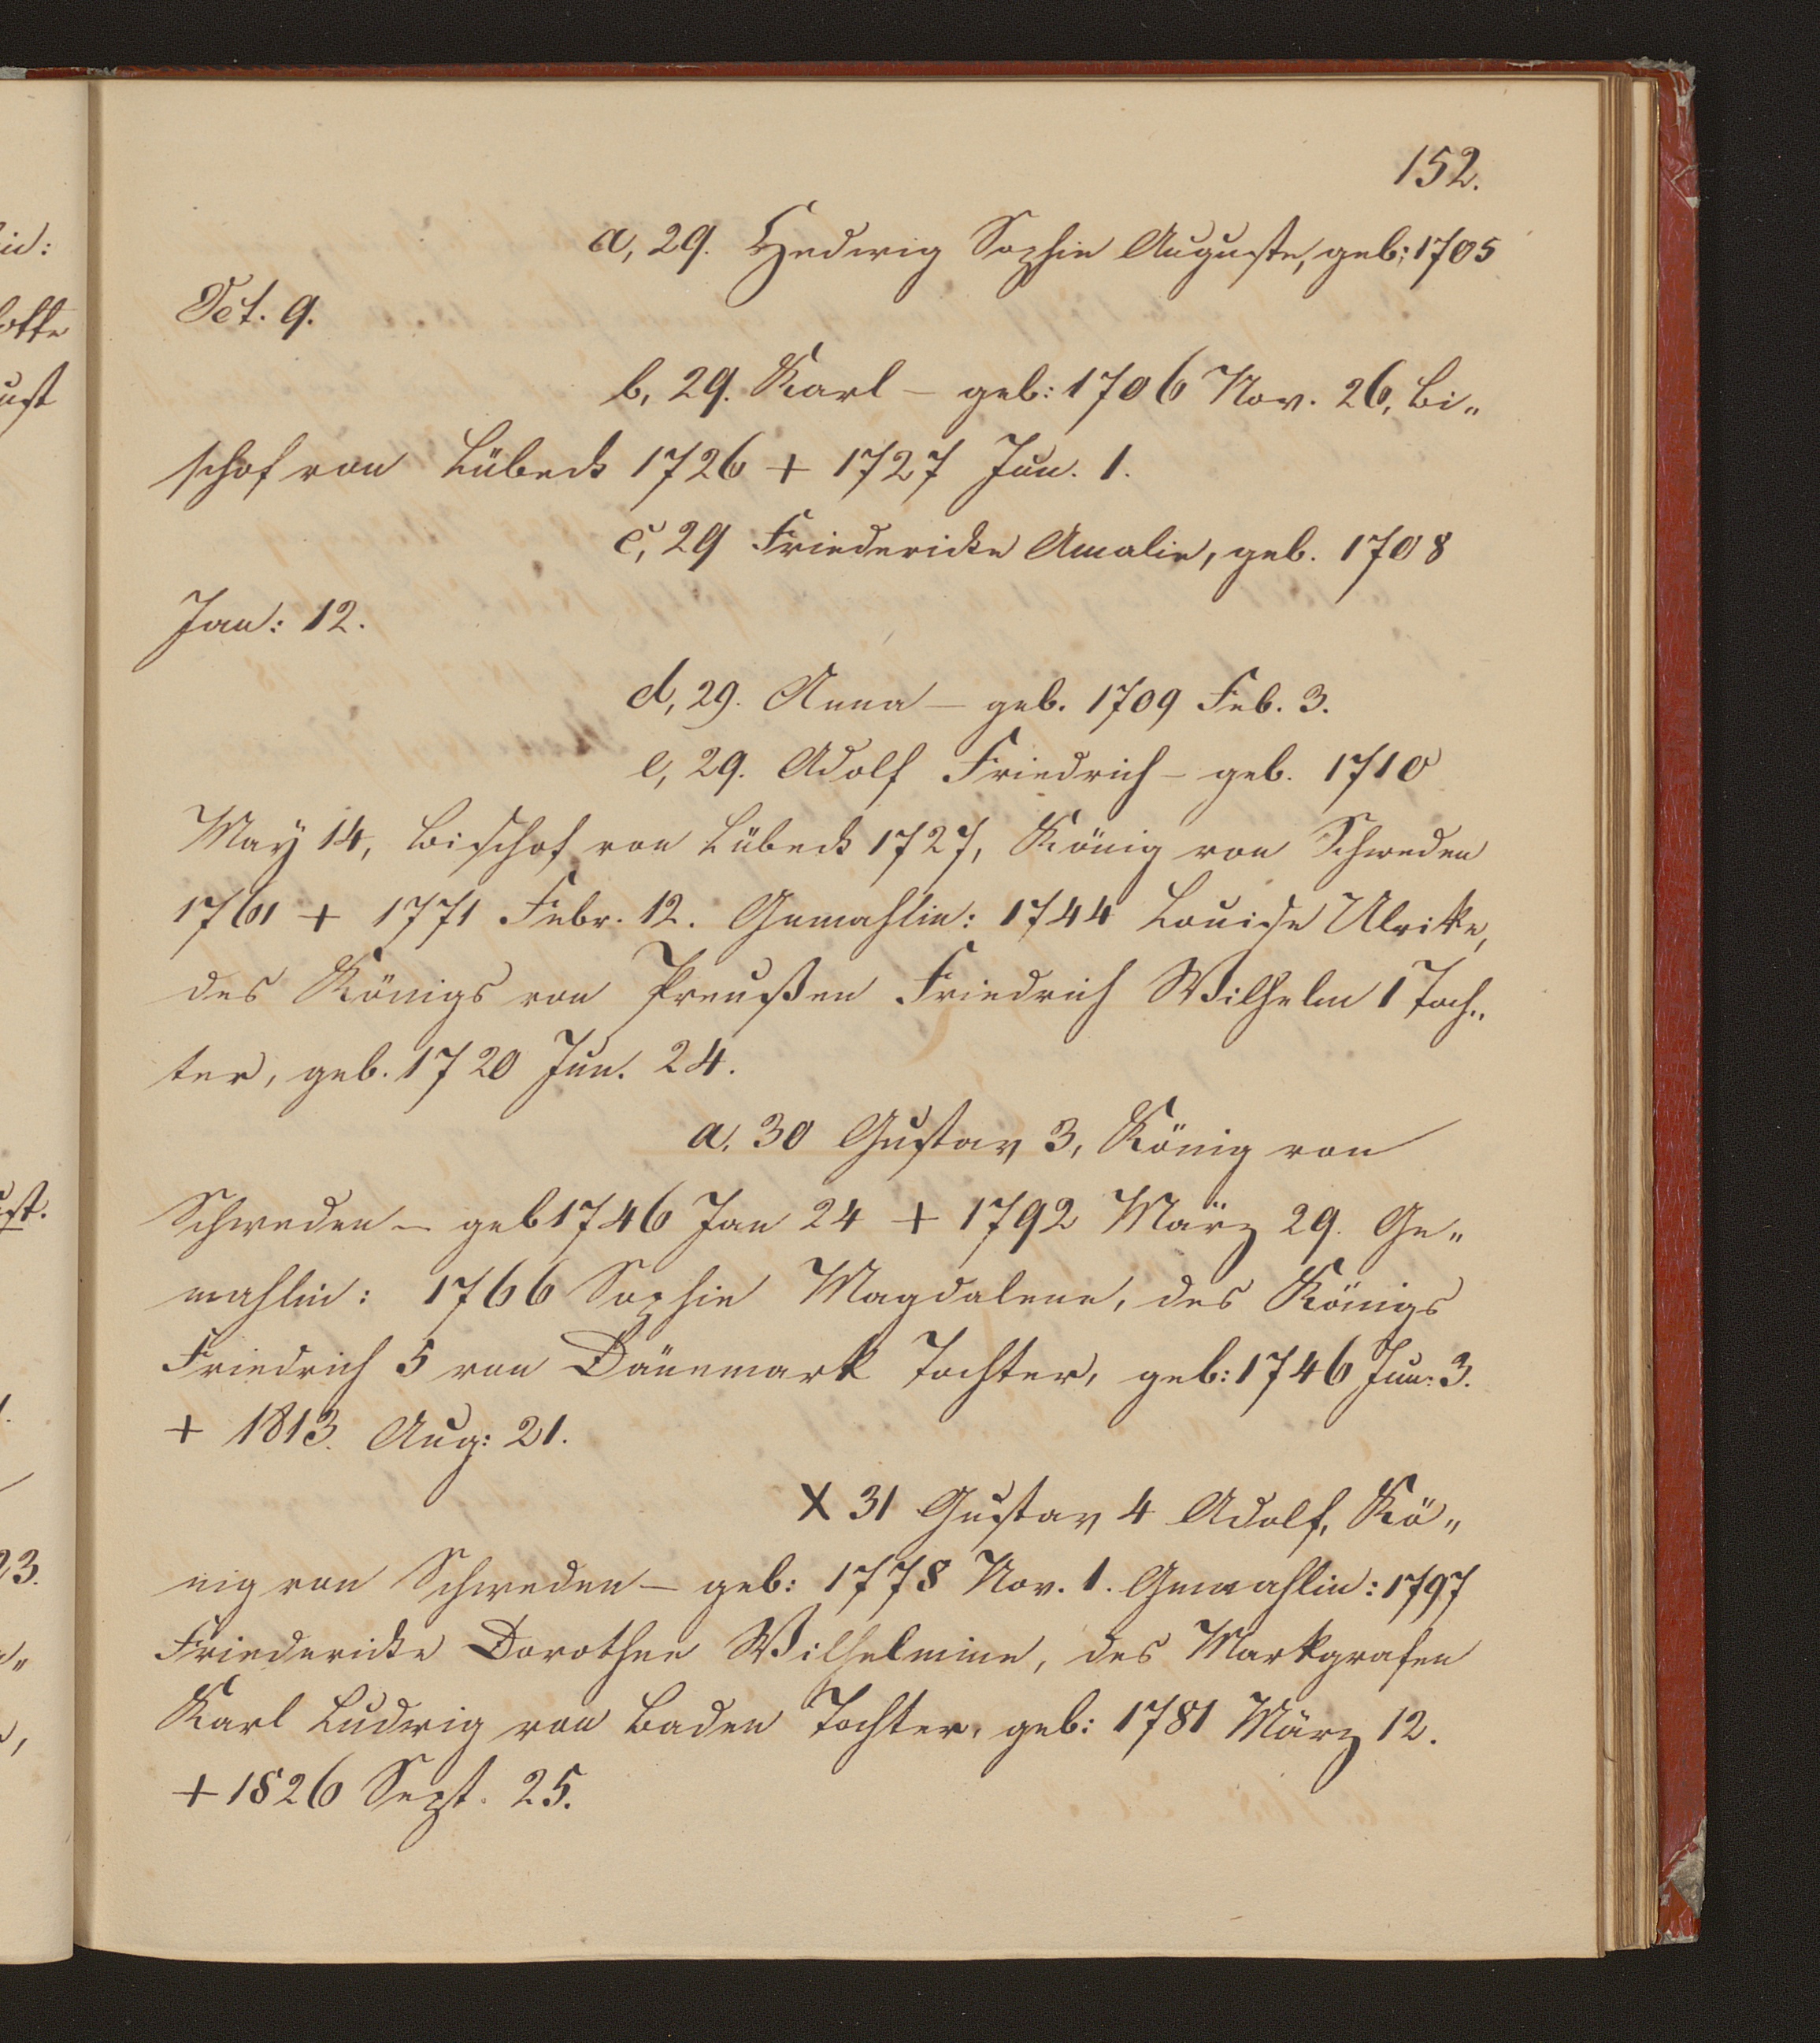 152.
a, 29. Hedwig Sophie Auguste, geb: 1705
Oct. 9.
b, 29. Karl – geb: 1706 Nov. 26, Bi„
schof von Lübeck 1726 + 1727 Jun. 1.
c, 29 Friedericke Amalie, geb. 1708
Jan: 12.
d, 29. Anna – geb. 1709 Feb. 3.
e, 29. Adolf Friedrich – geb. 1710
May 14, Bischof von Lübeck 1727, König von Schweden
1761 + 1771 Febr. 12. Gemahlin: 1744 Louise Ulrike,
des Königs von Preußen Friedrich Wilhelm 1 Toch„
ter, geb. 1720 Jun. 24.
a, 30 Gustav 3, König von
Schweden – geb 1746 Jan 24 + 1792 März 29. Ge„
mahlin: 1766 Sophie Magdalene, des Königs
Friedrich 5 von Dänemark Tochter, geb: 1746 Jun: 3.
+ 1813. Aug: 21.
X 31 Gustav 4 Adolf, Kö„
nig von Schweden – geb: 1778 Nov. 1. Gemahlin: 1797
Friedericke Dorothee Wilhelmine, des Markgrafen
Karl Ludwig von Baden Tochter, geb: 1781 März 12.
+ 1826 Sept. 25.